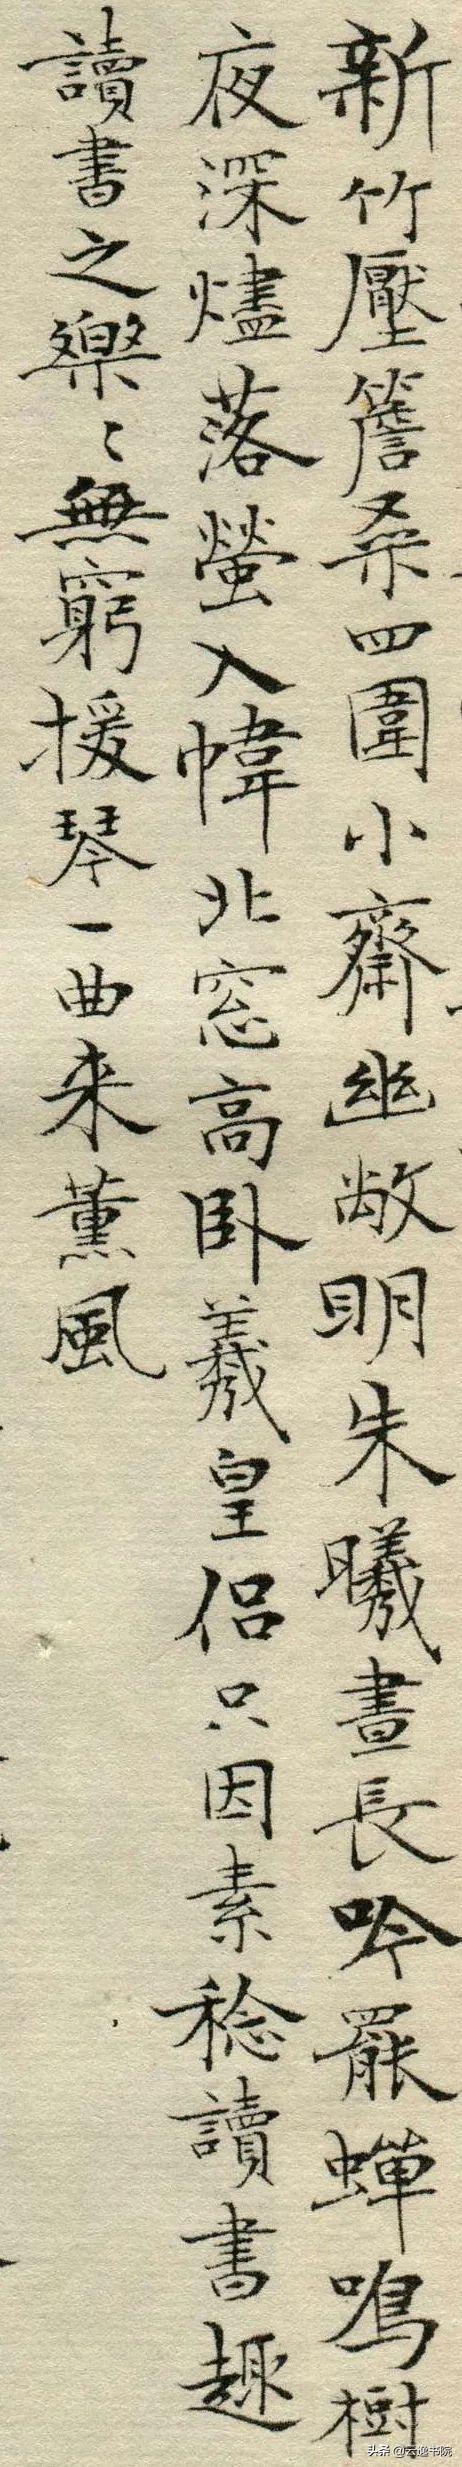 新竹壓簷桑四圍小齋幽敞明朱曦晝長吟罷蟬鳴樹
夜深燼落螢入幃北窓高卧羲皇侣只因素稔讀書趣
讀書之樂〻無窮援琴一曲来薰風
头条 @云逸书院